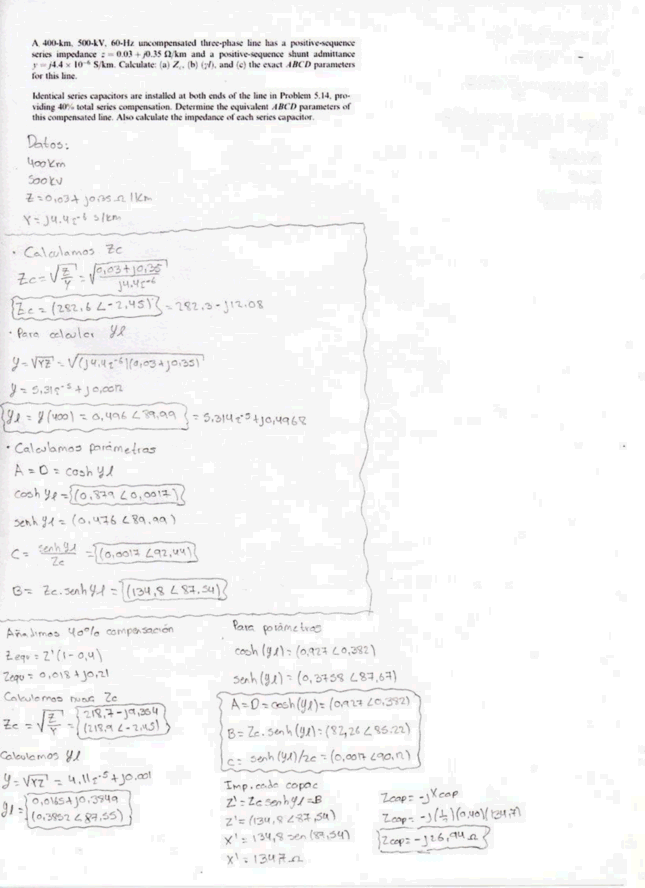 A 400-km, 500-kV, 60-Hz uncompensated three-phase line has a positive-sequence
series impedance z = 0.03 + j0.35 Ω/km and a positive-sequence shunt admittance
y = j4.4 × 10⁻⁶ S/km. Calculate: (a) Zc, (b) (γl), and (c) the exact ABCD parameters
for this line.
Identical series capacitors are installed at both ends of the line in Problem 5.14, pro-
viding 40% total series compensation. Determine the equivalent ABCD parameters of
this compensated line. Also calculate the impedance of each series capacitor.
Datos:
400Km
500kV
Z=0,03+j0,35 Ω/Km
Y= j4.4ε⁻⁶ s/km
· Calculamos Zc
Zc=√Z/Y = √0,03+j0,35/j4.4ε⁻⁶
Zc = (282,6 ∠-2,45) = 282.3-j12.08
· Para calcular γl
γ=√YZ' = √(j4.4ε⁻⁶)(0,03+j0,35)
γ= 5,31ε⁻⁵ + j0,0012
γl = γ(400) = 0,496 ∠89,99 = 5.314ε⁻⁵+j0,4968
· Calculamos parámetros
A=D = cosh γl
cosh γl = (0,879 ∠0,0017)
senh γl = (0,476 ∠89.99)
C = senh γl/Zc = (0,0017 ∠92,44)
B= Zc.senh γl = (134,8 ∠87,54)
Añadimos 40% compensación
Zequ = Z'(1-0,4)
Zequ = 0,018+j0,21
Calculamos nuev Zc
Zc = √Z/Y = 218,7-j9,354
(218,9 ∠-2,45)
Calculamos γl
γ=√YZ' = 4.11ε⁻⁵+j0,001
γl = 0,0165+j0,3849
(0,3852 ∠87,55)
Para parámetros
cosh (γl) = (0,927 ∠0,382)
senh (γl) = (0,3758 ∠87,67)
A=D=cosh(γl)= (0,927 ∠0,382)
B= Zc.senh(γl) = (82,26 ∠85.22)
C= senh (γl)/Zc = (0,0017 ∠90,12)
Z'= Zc senh γl =B
Z'= (134,8 ∠87,54)
X'= 134,8 sen (87,54)
X'= 134.7 Ω
Zcap= -jXcap
Zcap= -j(½)(0,40)(134,7)
Zcap= -j26,94 Ω